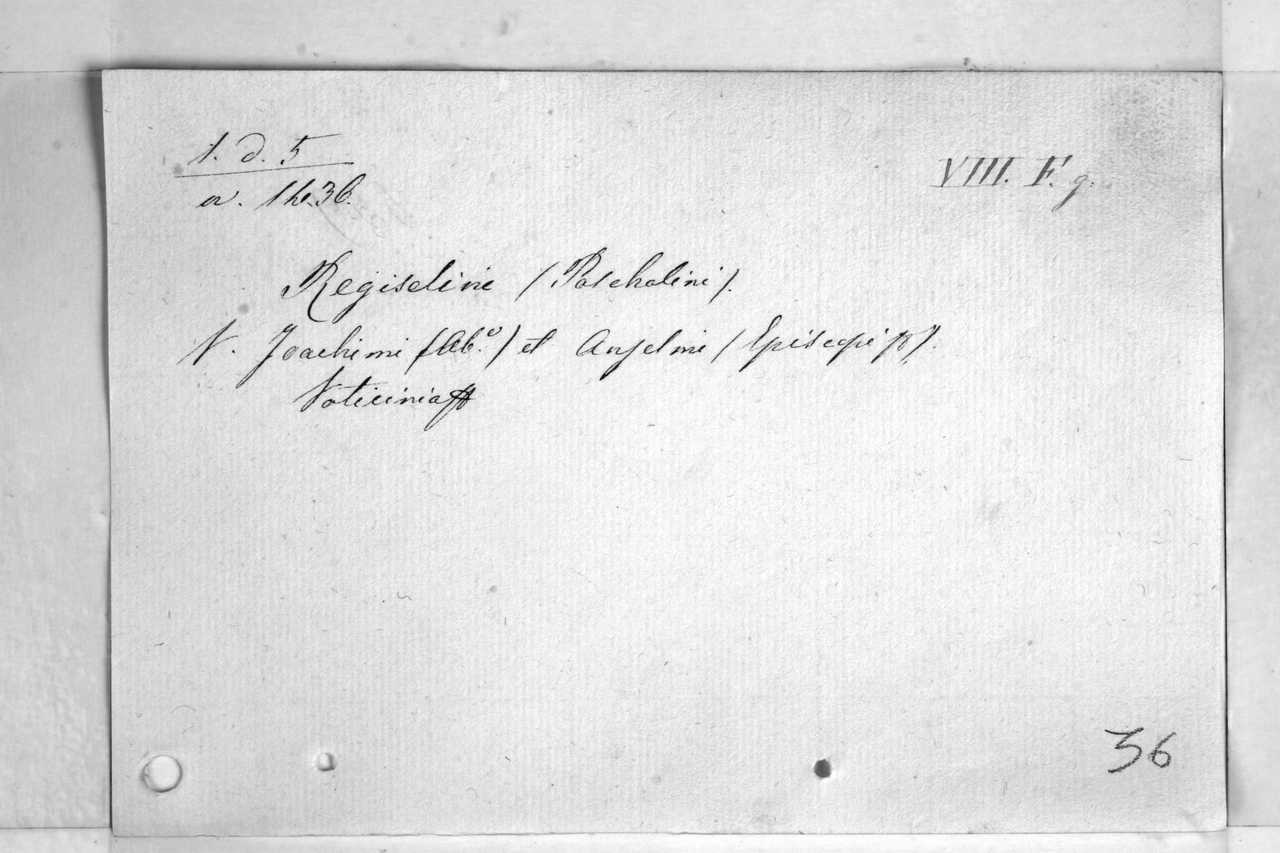 1. d. 5
VIII. F. g.
Regiselini (Paschalini).
V. Joachimi (Ab.) et Anselmi (Episcopi).
Vaticinia
36